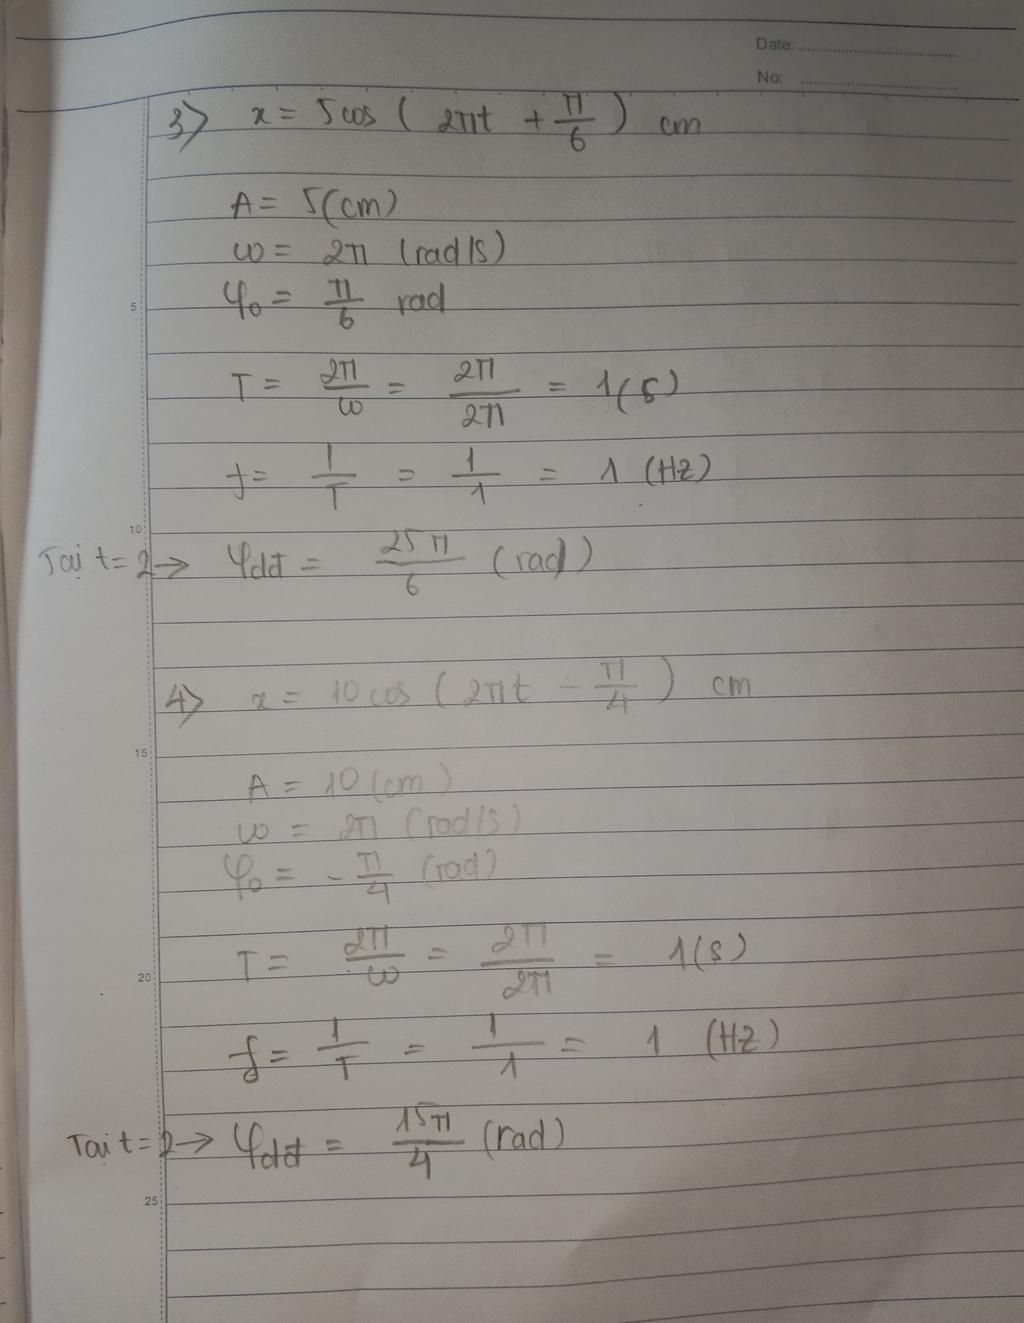 Date:
No:
3) x = 5cos ( 2πt + π/6 ) cm
A = 5(cm)
ω = 2π (rad/s)
5
φ₀ = π/6 rad
T = 2π/ω = 2π/2π = 1(s)
f = 1/T = 1/1 = 1 (Hz)
10
Tại t = 2 → φdđ = 25π/6 (rad)
4) x = 10cos ( 2πt - π/4 ) cm
15
A = 10 (cm)
ω = 2π (rad/s)
φ₀ = - π/4 (rad)
T = 2π/ω = 2π/2π = 1(s)
20
f = 1/T = 1/1 = 1 (Hz)
Tại t = 2 → φdđ = 15π/4 (rad)
25